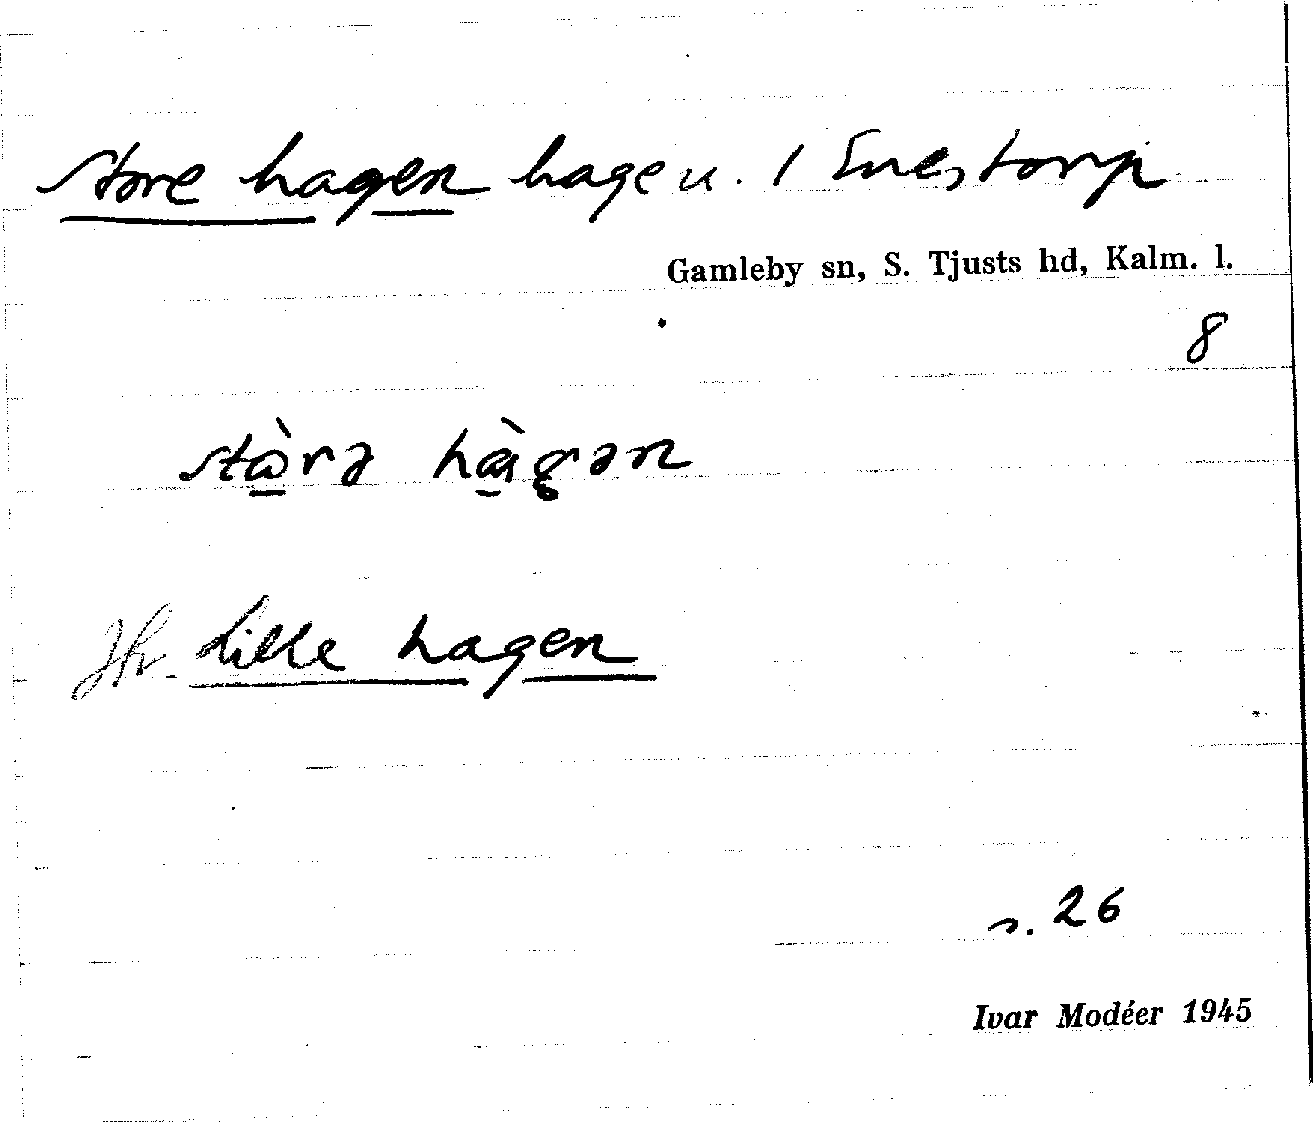 Store hagen hage u. 1 Enestorp
Gamleby sn, S. Tjusts hd, Kalm. l.
8
Jfr. Lille hagen
s. 26
Ivar Modéer 1945